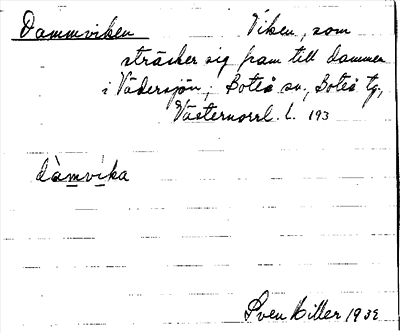 Dammviken Viken, som
sträcker sig fram till dammen
i Vädersjön, Boteå sn, Boteå tg,
Västernorrl. l. 193
dàmvíka
Sven Hiller 193